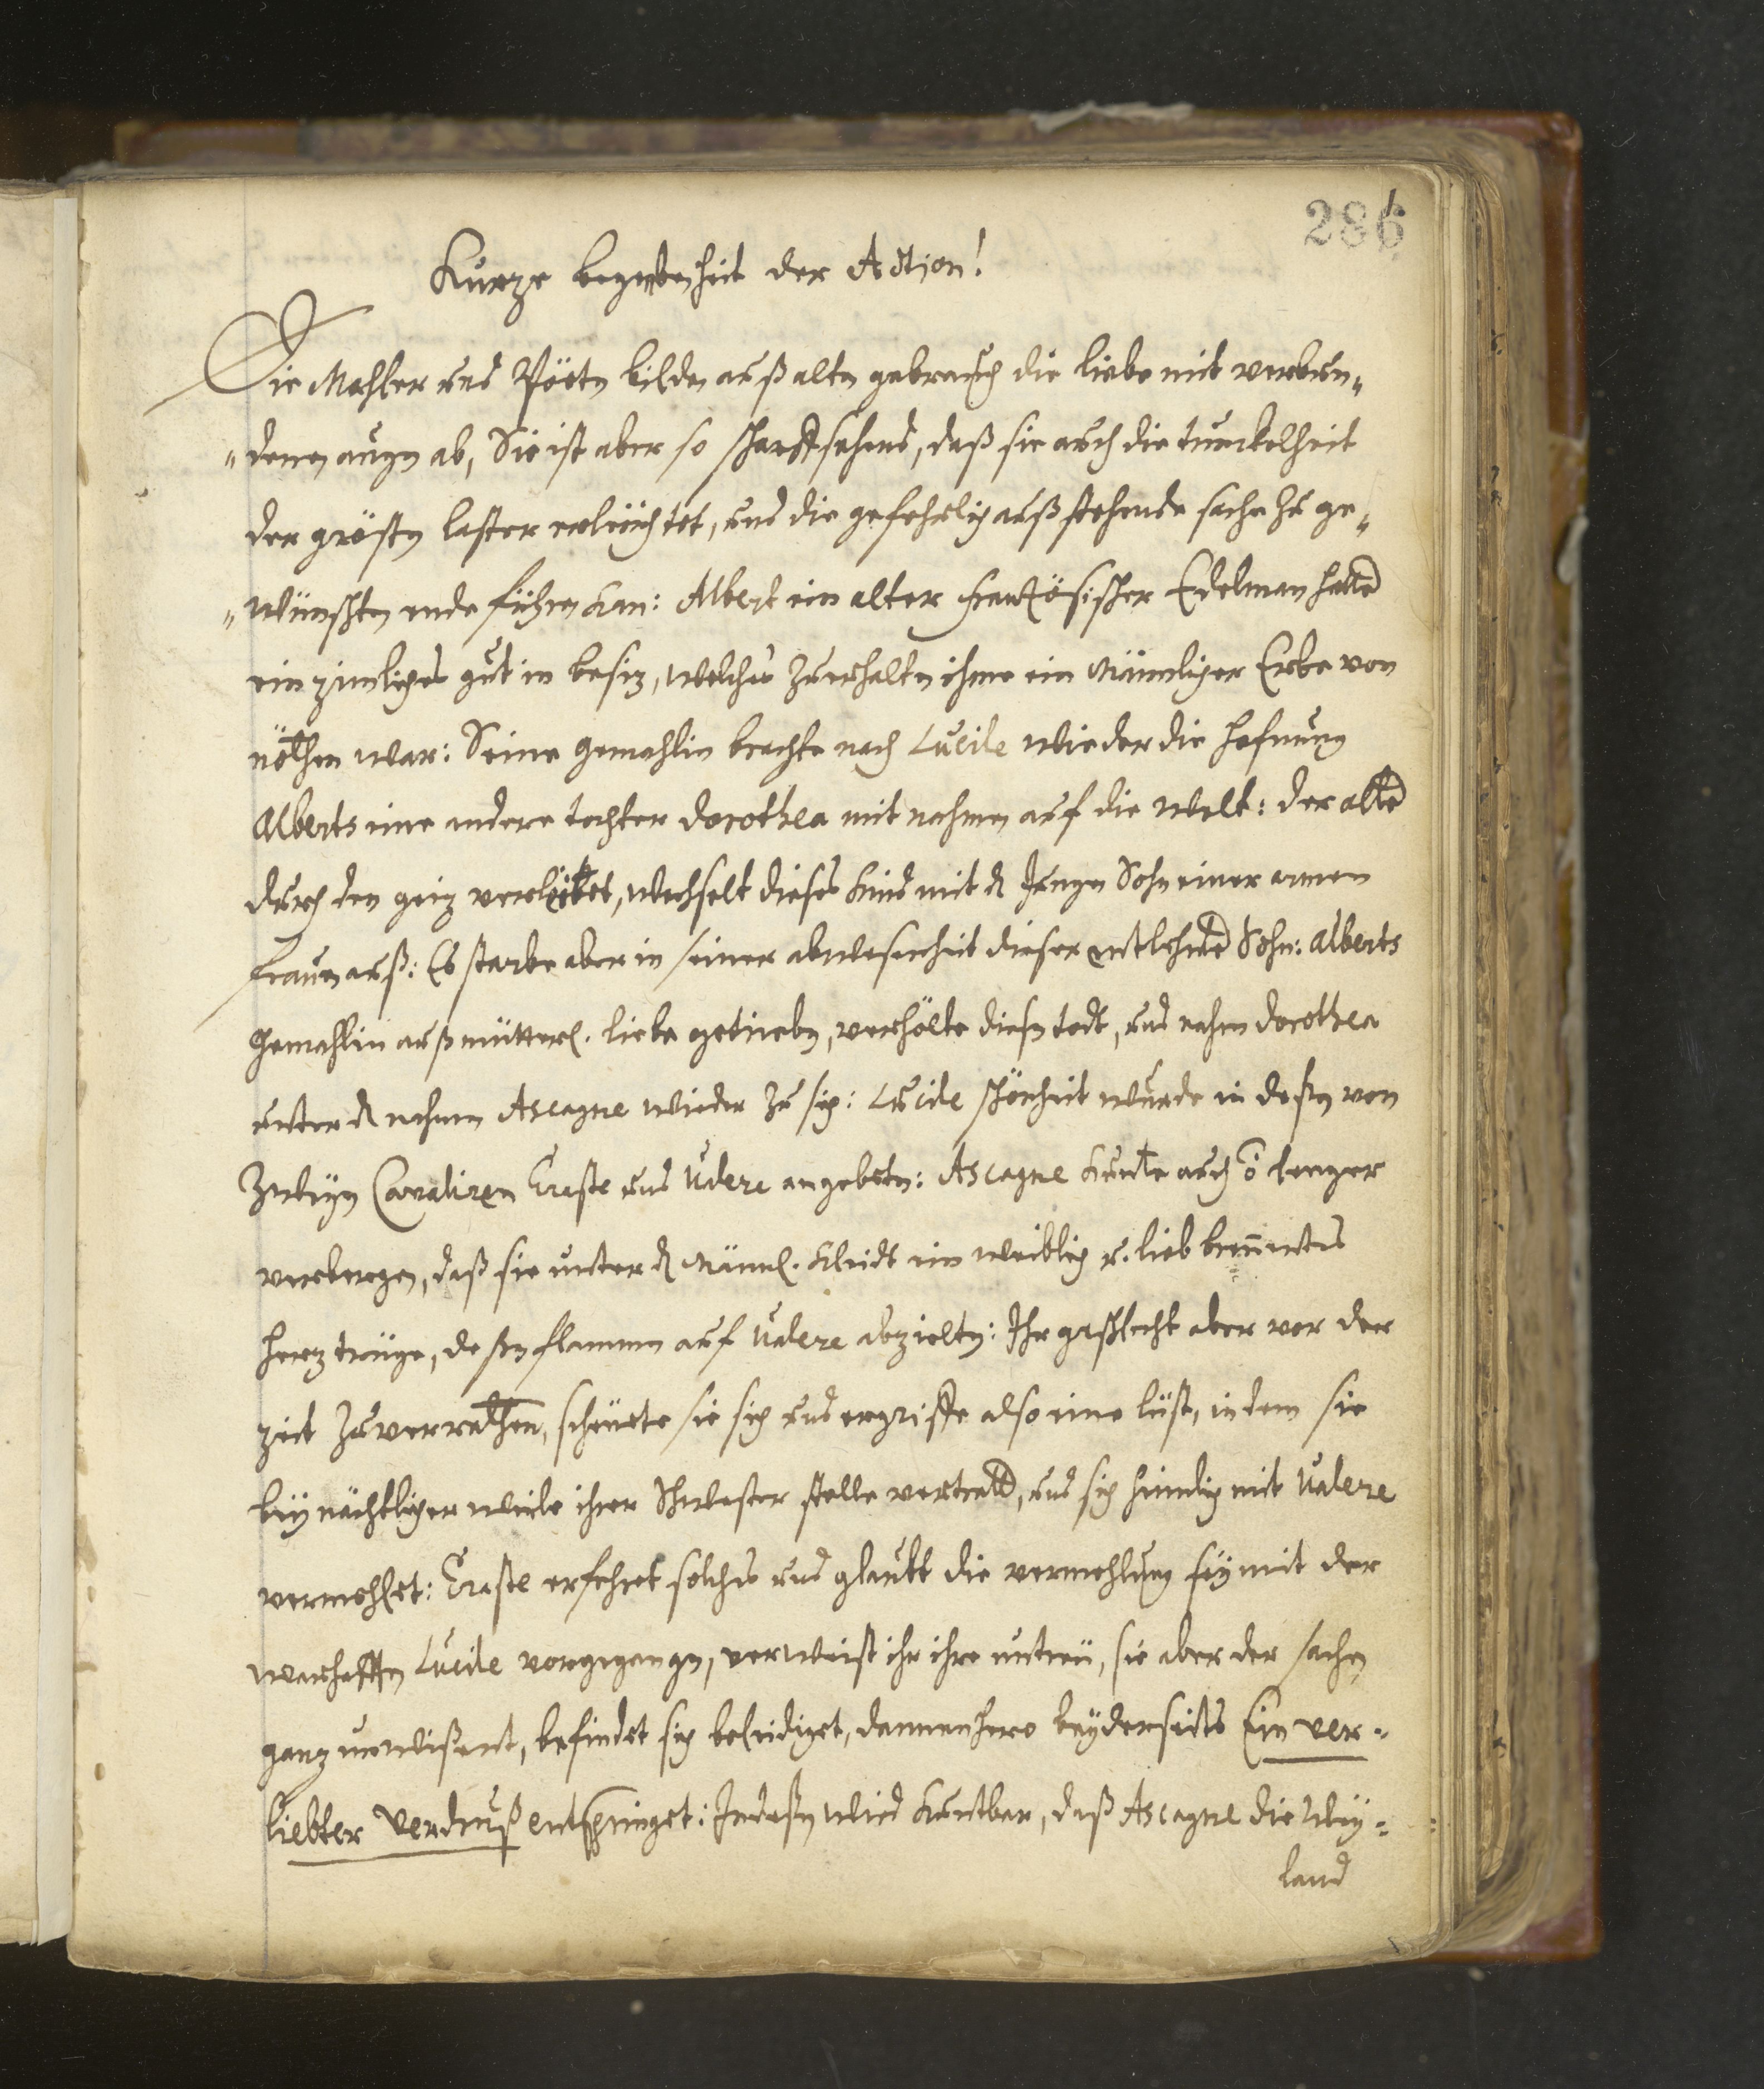 286
Kurze begebenheit der Action!
Die Mahler und Pöeten bilden auß alten gebrauch die liebe mit verbun„
„denen augen ab, Sie ist aber so scharffsehend, daß sie auch die tunckelheit
der grösten laster erleüchtet, und die gefehrlich außstehende sache zu ge„
„wünschten ende führen kan: Albert ein alter frantzösischer Edelman hatte
ein zimliches gut in besiz, welches zuerhalten ihme ein Männlicher Erbe von
nöthen war: Seine gemahlin brachte nach Lucile wieder die hofnung
Alberts eine andere tochter Dorothea mit nahmen auf die welt: der alte
durch den geiz verleitet, wechselt dieses kind mit d jungen Sohn einer armen
frauen auß: Es starbe aber in seiner abwesenheit dieser entlehnte Sohn: Alberts
Gemahlin auß mütterl. liebe getrieben, verhölte diesen todt, und nahm Dorothea
unter d nahmen Ascagne wieder zu sich: Lucile schönheit wurde in deßen von
zweyen Cavaliren Eraste und Valere angebeten: Ascagne kunte auch õ lenger
verbergen, daß sie unter d Männl. kleidt ein weiblich u. lieb brennentes
herz trüge, deßen flammen auf Valere abzielten: Ihr geschlecht aber vor der
zeit zuverrathen, scheüete sie sich und ergriffe also eine lüst, in dem sie
bey nächtlicher weile ihrer Schwester stelle vertratt, und sich heimlich mit Valere
vermehlet: Eraste erfehret solches und glaubt die vermehlung sey mit der
warhafften Lucile vorgegangen, verweist ihr ihre untreü, sie aber der sachen
ganz unwißent, befindet sich beleidiget, dannenhero beyderseits Ein ver-
liebter Verdruß entspringet: Indeßen wird kuntbar, daß Ascagne die Wey-
land